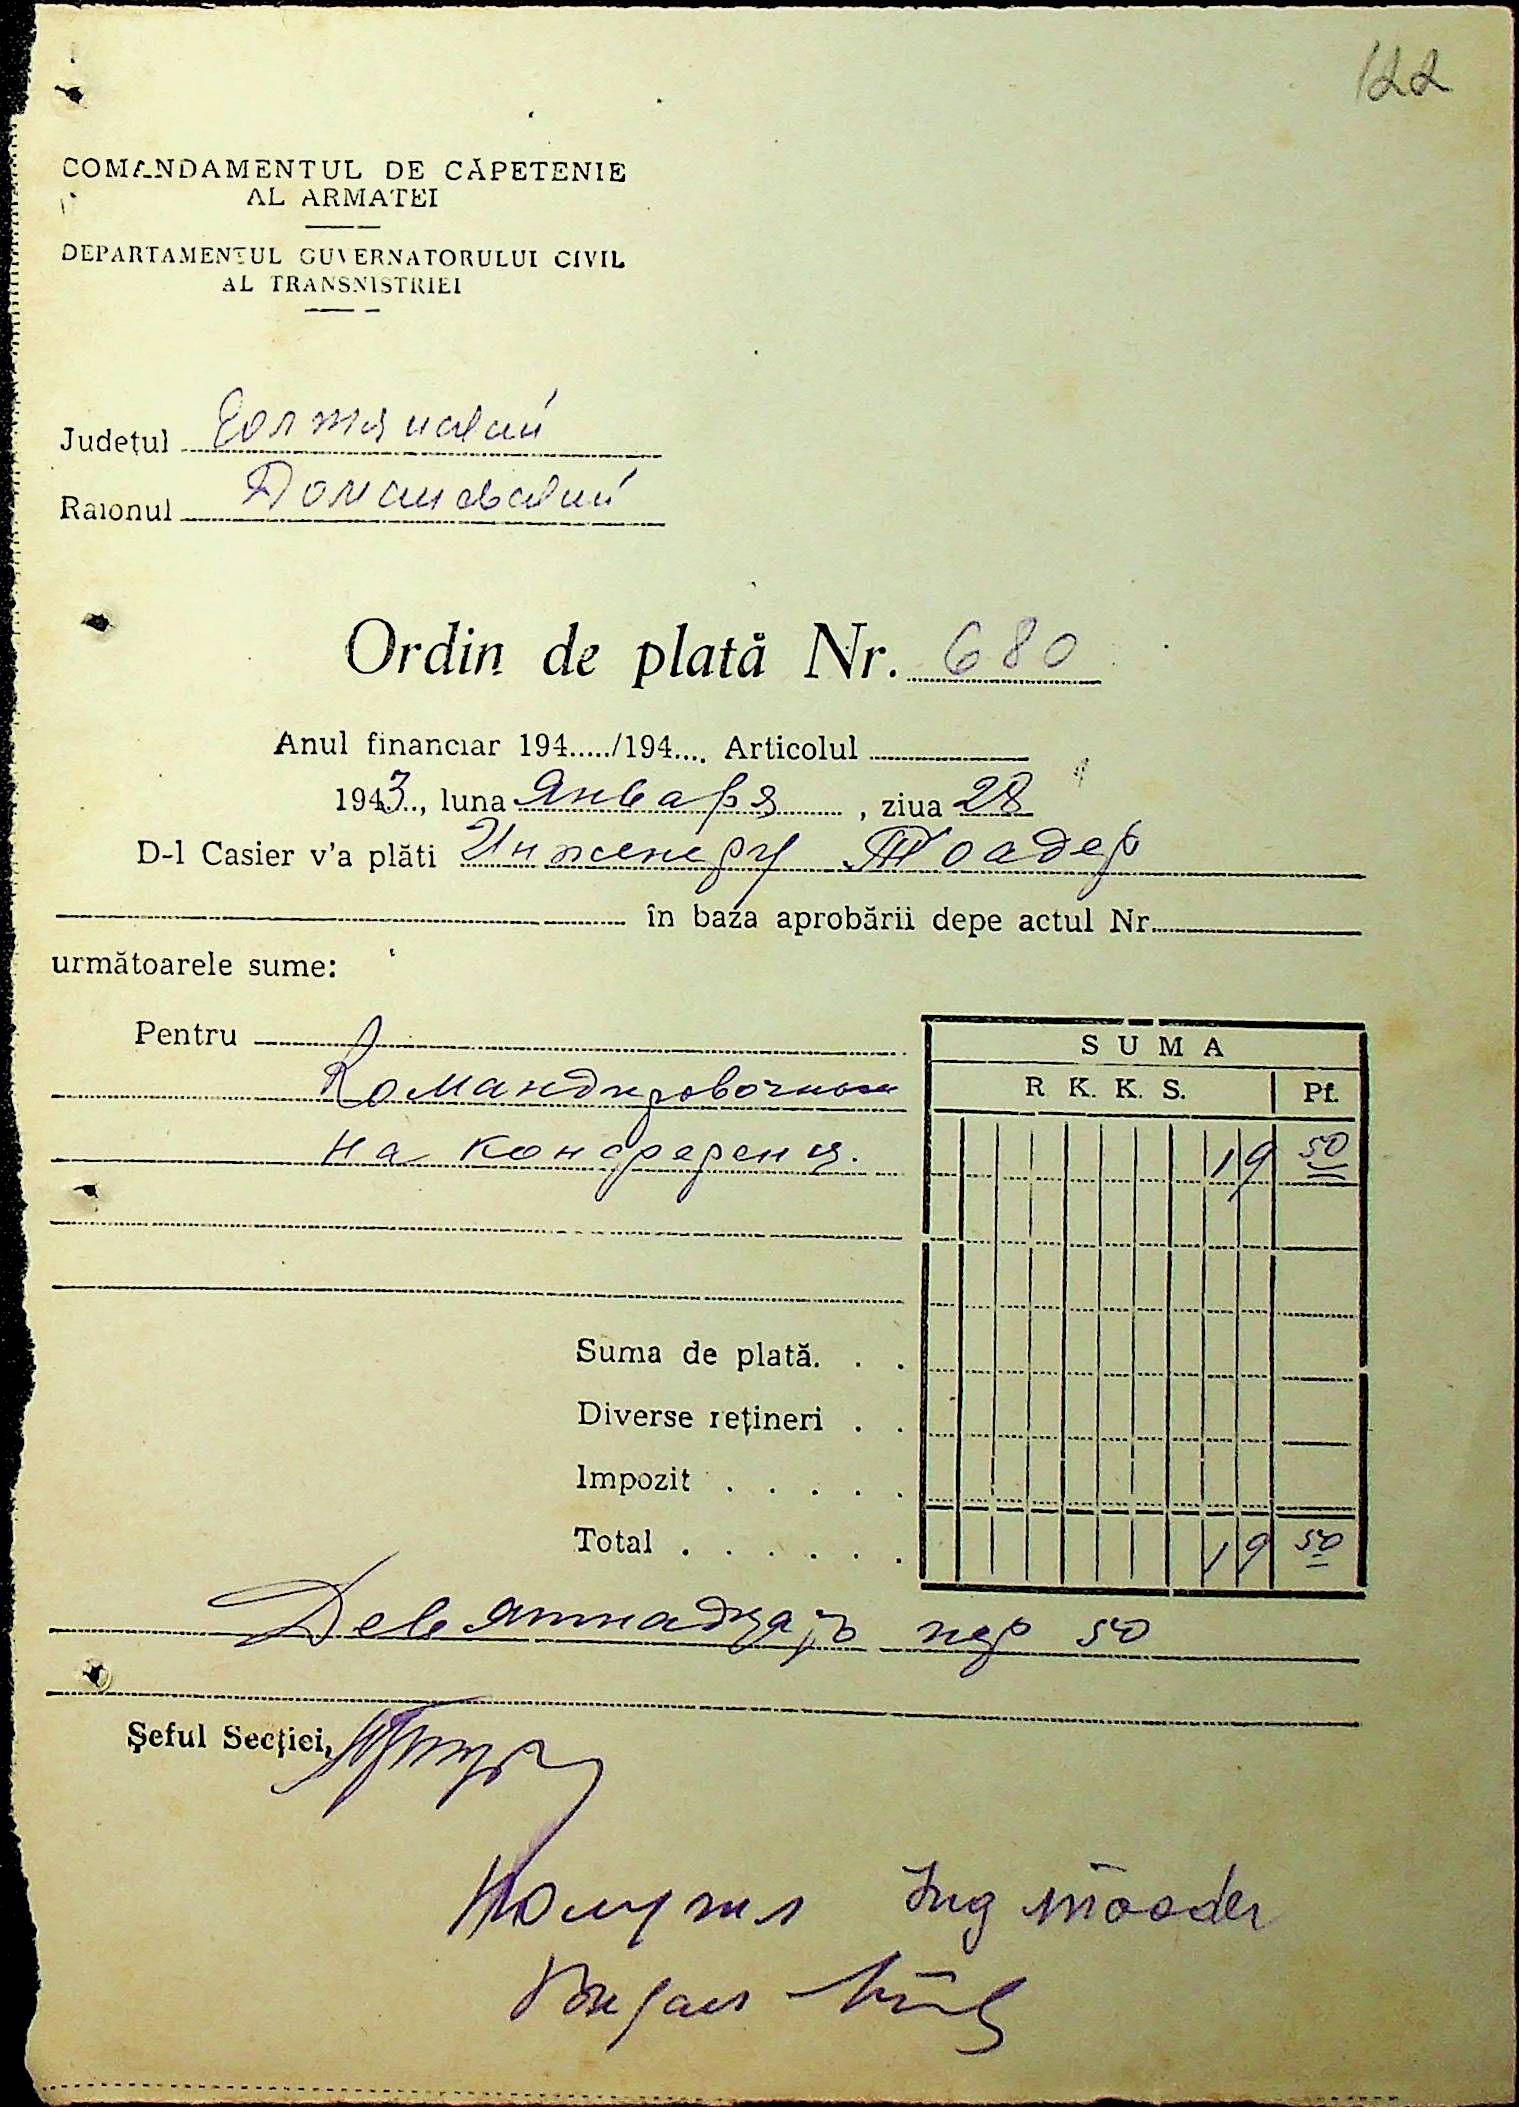 122
COMANDAMENTUL DE CĂPETENIE
AL ARMATEI
DEPARTAMENTUL GUVERNATORULUI CIVIL
AL TRANSNISTRIEI
Județul Голтянский
Raionul Доманевский
Ordin de plată Nr. 680
Anul financiar 194...../194.... Articolul
1943.., luna Января, ziua 28
D-l Casier v'a plăti Инженеру Тоадер
în baza aprobării depe actul Nr.
următoarele sume:
Pentru
SUMA
Командировочные
R K. K. S. Pf.
на конференц. 19 50
Suma de plată. . .
Diverse rețineri . .
Impozit . . . . .
Total . . . . . . 19 50
Девятнадцать 50
Șeful Secției,
Получил Ing Toader
Выдал